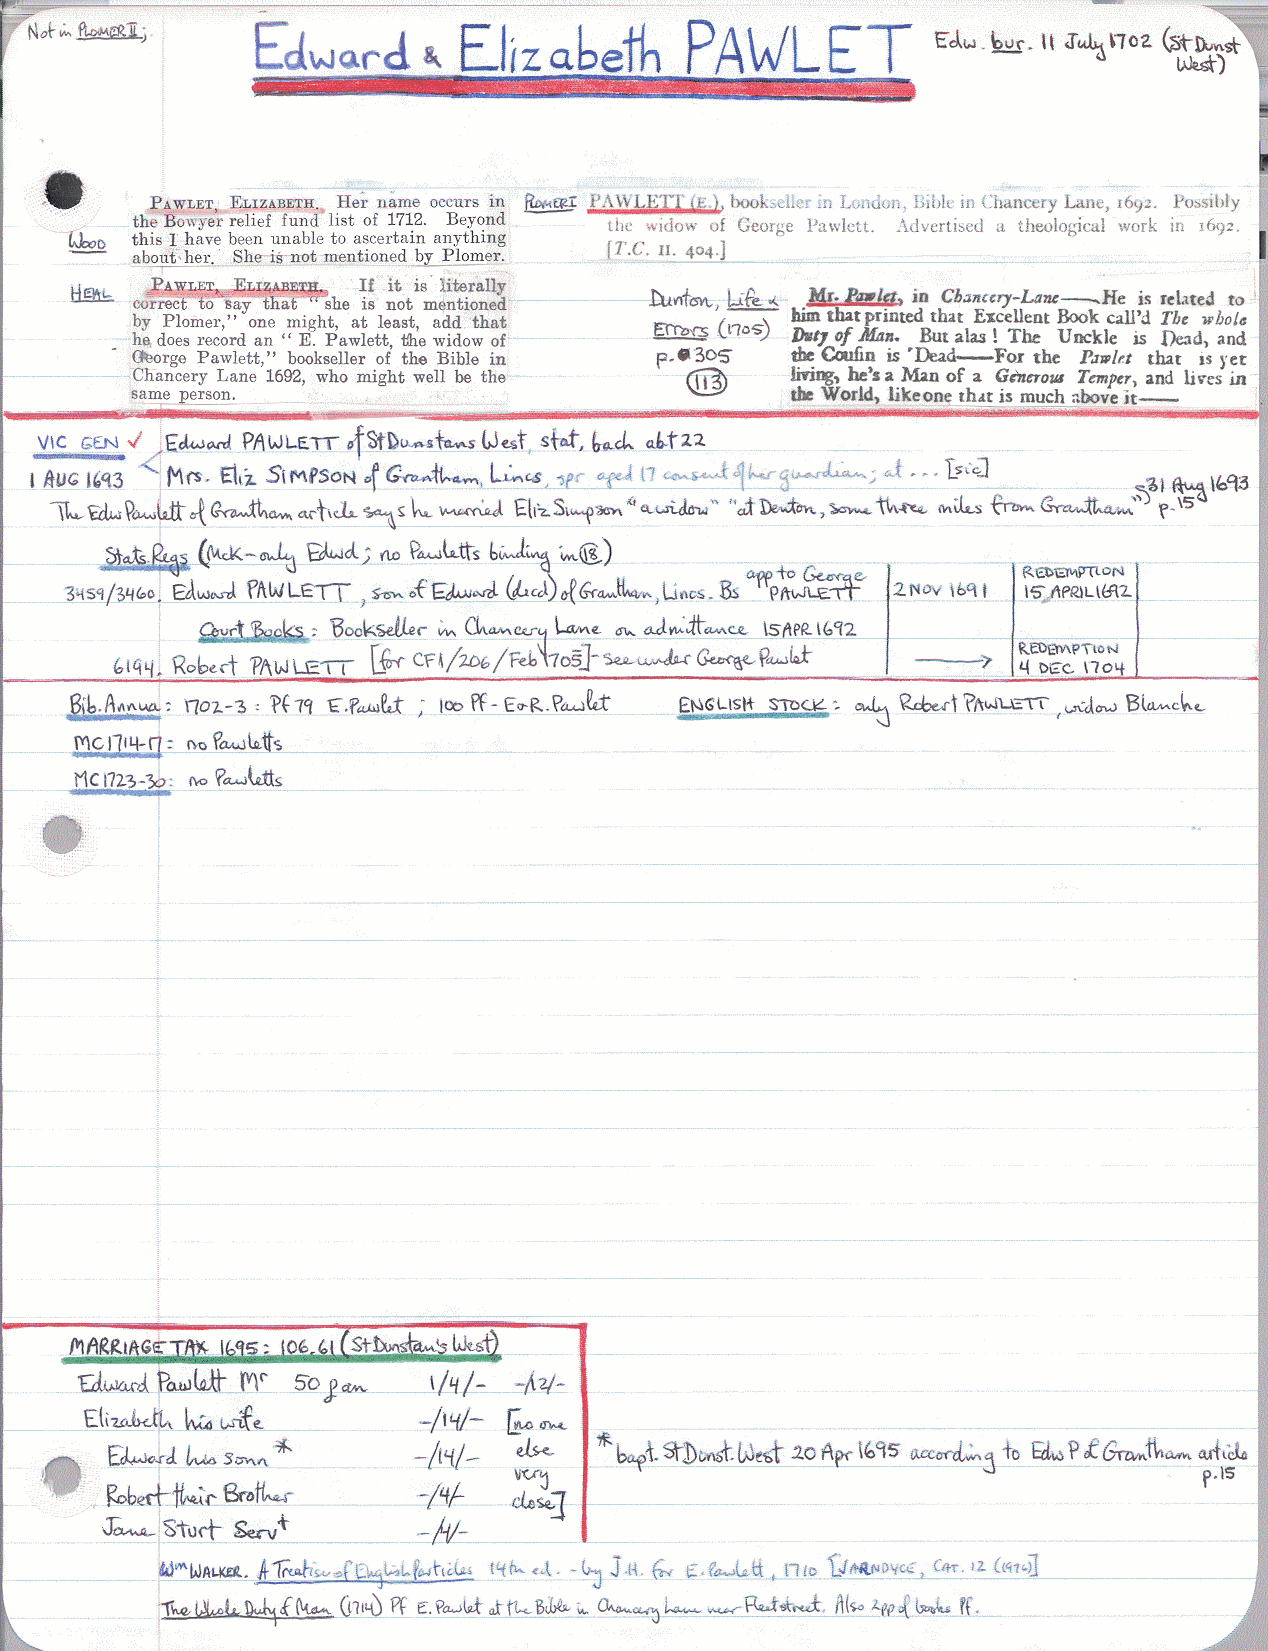 Not in PLOMER II;
Edward & Elizabeth PAWLET
Edw. bur. 11 July 1702 (St Dunst
West)
WOOD
PAWLET, ELIZABETH. Her name occurs in
the Bowyer relief fund list of 1712. Beyond
this I have been unable to ascertain anything
about her. She is not mentioned by Plomer.
PLOMER I
PAWLETT (E.), bookseller in London, Bible in Chancery Lane, 1692. Possibly
the widow of George Pawlett. Advertised a theological work in 1692.
[T.C. II. 404.]
HEAL
PAWLET, ELIZABETH. If it is literally
correct to say that "she is not mentioned
by Plomer," one might, at least, add that
he does record an "E. Pawlett, the widow of
George Pawlett," bookseller of the Bible in
Chancery Lane 1692, who might well be the
same person.
Dunton, Life &
Errors (1705)
p. 305
113
Mr. Pawlet, in Chancery-Lane—He is related to
him that printed that Excellent Book call'd The whole
Duty of Man. But alas! The Unckle is Dead, and
the Coufin is Dead—For the Pawlet that is yet
living, he's a Man of a Generous Temper, and lives in
the World, like one that is much above it—
VIC GEN ✓ Edward PAWLETT of St Dunstans West, stat, bach abt 22
1 AUG 1693 Mrs. Eliz SIMPSON of Grantham, Lincs, spr aged 17 consent of her guardian; at ... [sic]
The Edw Pawlett of Grantham article says he married Eliz Simpson "a widow" "at Denton, some three miles from Grantham" 31 Aug 1693 p.15
Stats. Regs (McK - only Edwd; no Pawletts binding in 18)
3459/3460. Edward PAWLETT, son of Edward (decd) of Grantham, Lincs. Bs app to George PAWLETT 2 NOV 1691 REDEMPTION 15 APRIL 1692
Court Books: Bookseller in Chancery Lane on admittance 15 APR 1692
6194. Robert PAWLETT [for CF1/206/Feb 1705] - see under George Pawlet → REDEMPTION 4 DEC 1704
Bib. Annua: 1702-3: Pf 79 E. Pawlet; 100 Pf - E & R. Pawlet ENGLISH STOCK: only Robert PAWLETT, widow Blanche
MC 1714-17: no Pawletts
MC 1723-30: no Pawletts
MARRIAGE TAX 1695: 106.61 (St Dunstan's West)
Edward Pawlett Mr 50 pan 1/4/- -/12/-
Elizabeth his wife -/14/- [no one
Edward his sonn * -/14/- else
very
Robert their Brother -/4/- close]
Jane Sturt Servt -/4/-
* bapt. St Dunst. West 20 Apr 1695 according to Edw P of Grantham article
p.15
Wm WALKER. A Treatise of English Particles 14th ed. - by J.H. for E. Pawlett, 1710 [JARNDYCE, CAT. 12 (1976)]
The Whole Duty of Man (1714) Pf E. Pawlet at the Bible in Chancery Lane near Fleetstreet. Also 2pp of books Pf.